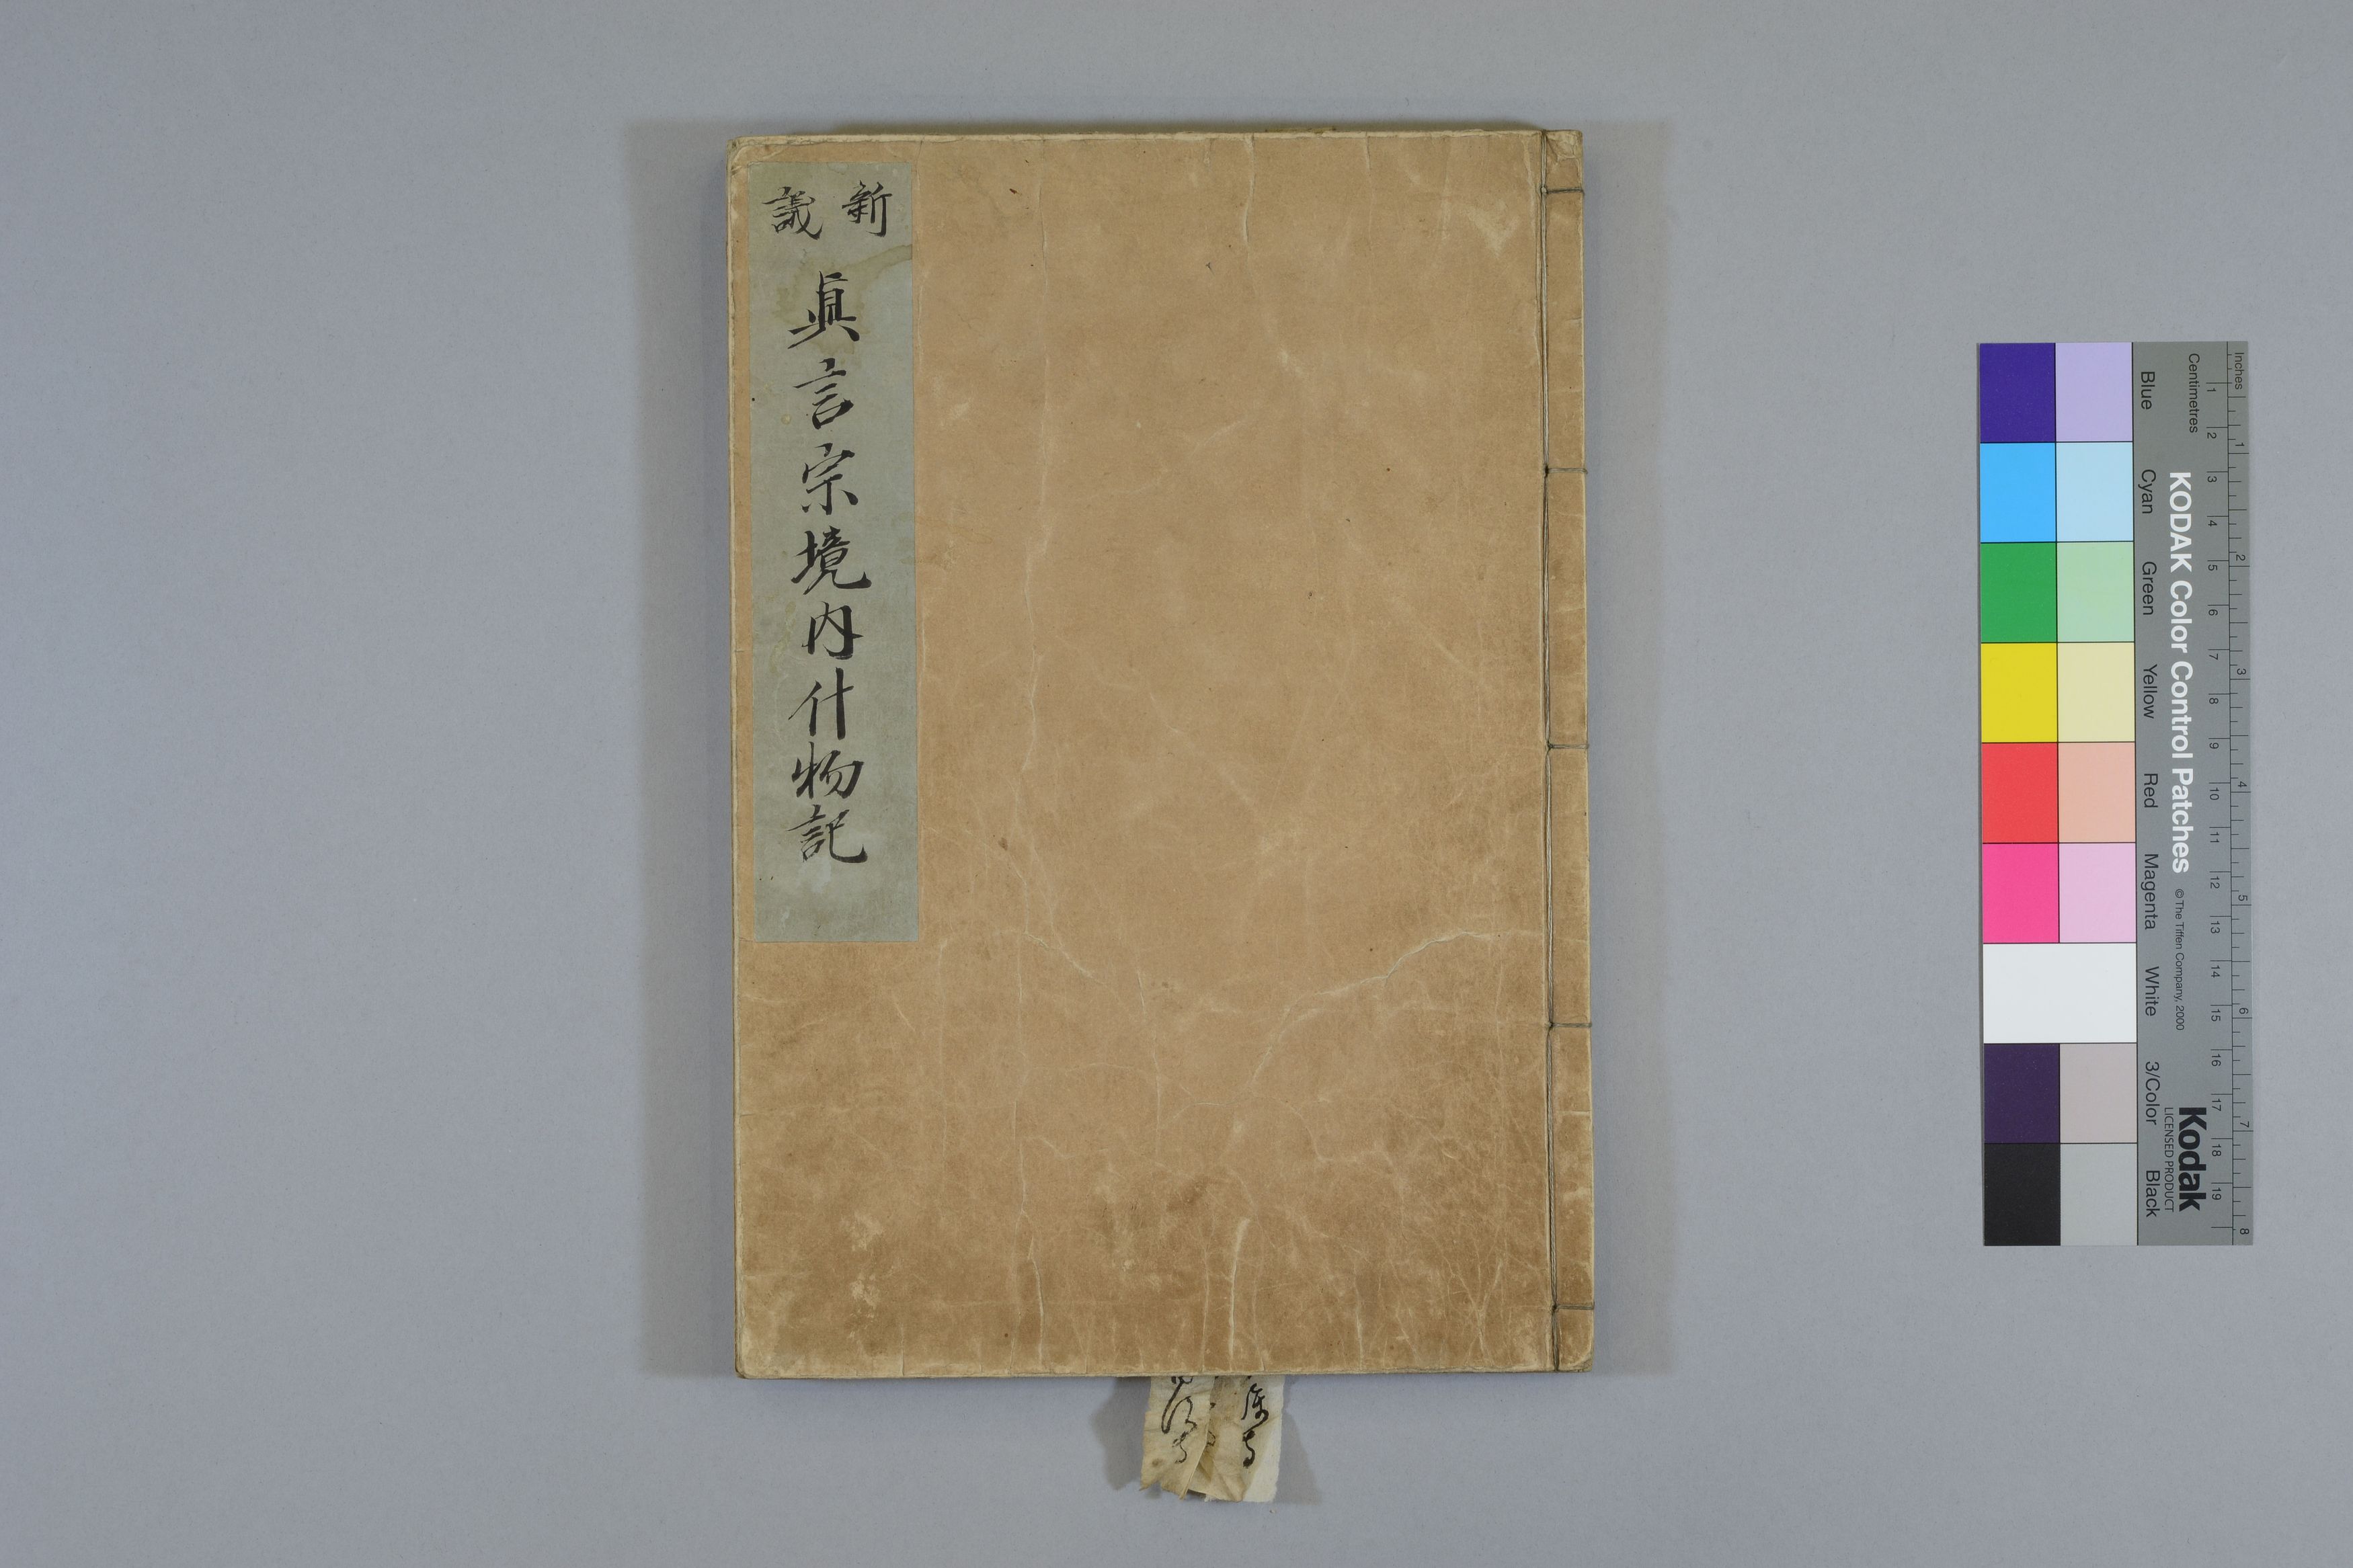 新議
眞言宗境内什物記
Inches
Centimetres
1 2 3 4 5 6 7 8
1 2 3 4 5 6 7 8 9 10 11 12 13 14 15 16 17 18 19
KODAK Color Control Patches
© The Tiffen Company, 2000
Kodak
LICENSED PRODUCT
Blue
Cyan
Green
Yellow
Red
Magenta
White
3/Color
Black